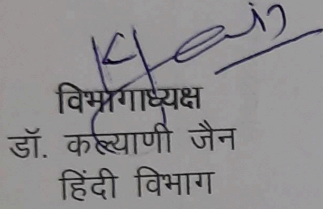 विभागाध्यक्ष
डॉ. कल्याणी जैन
हिंदी विभाग